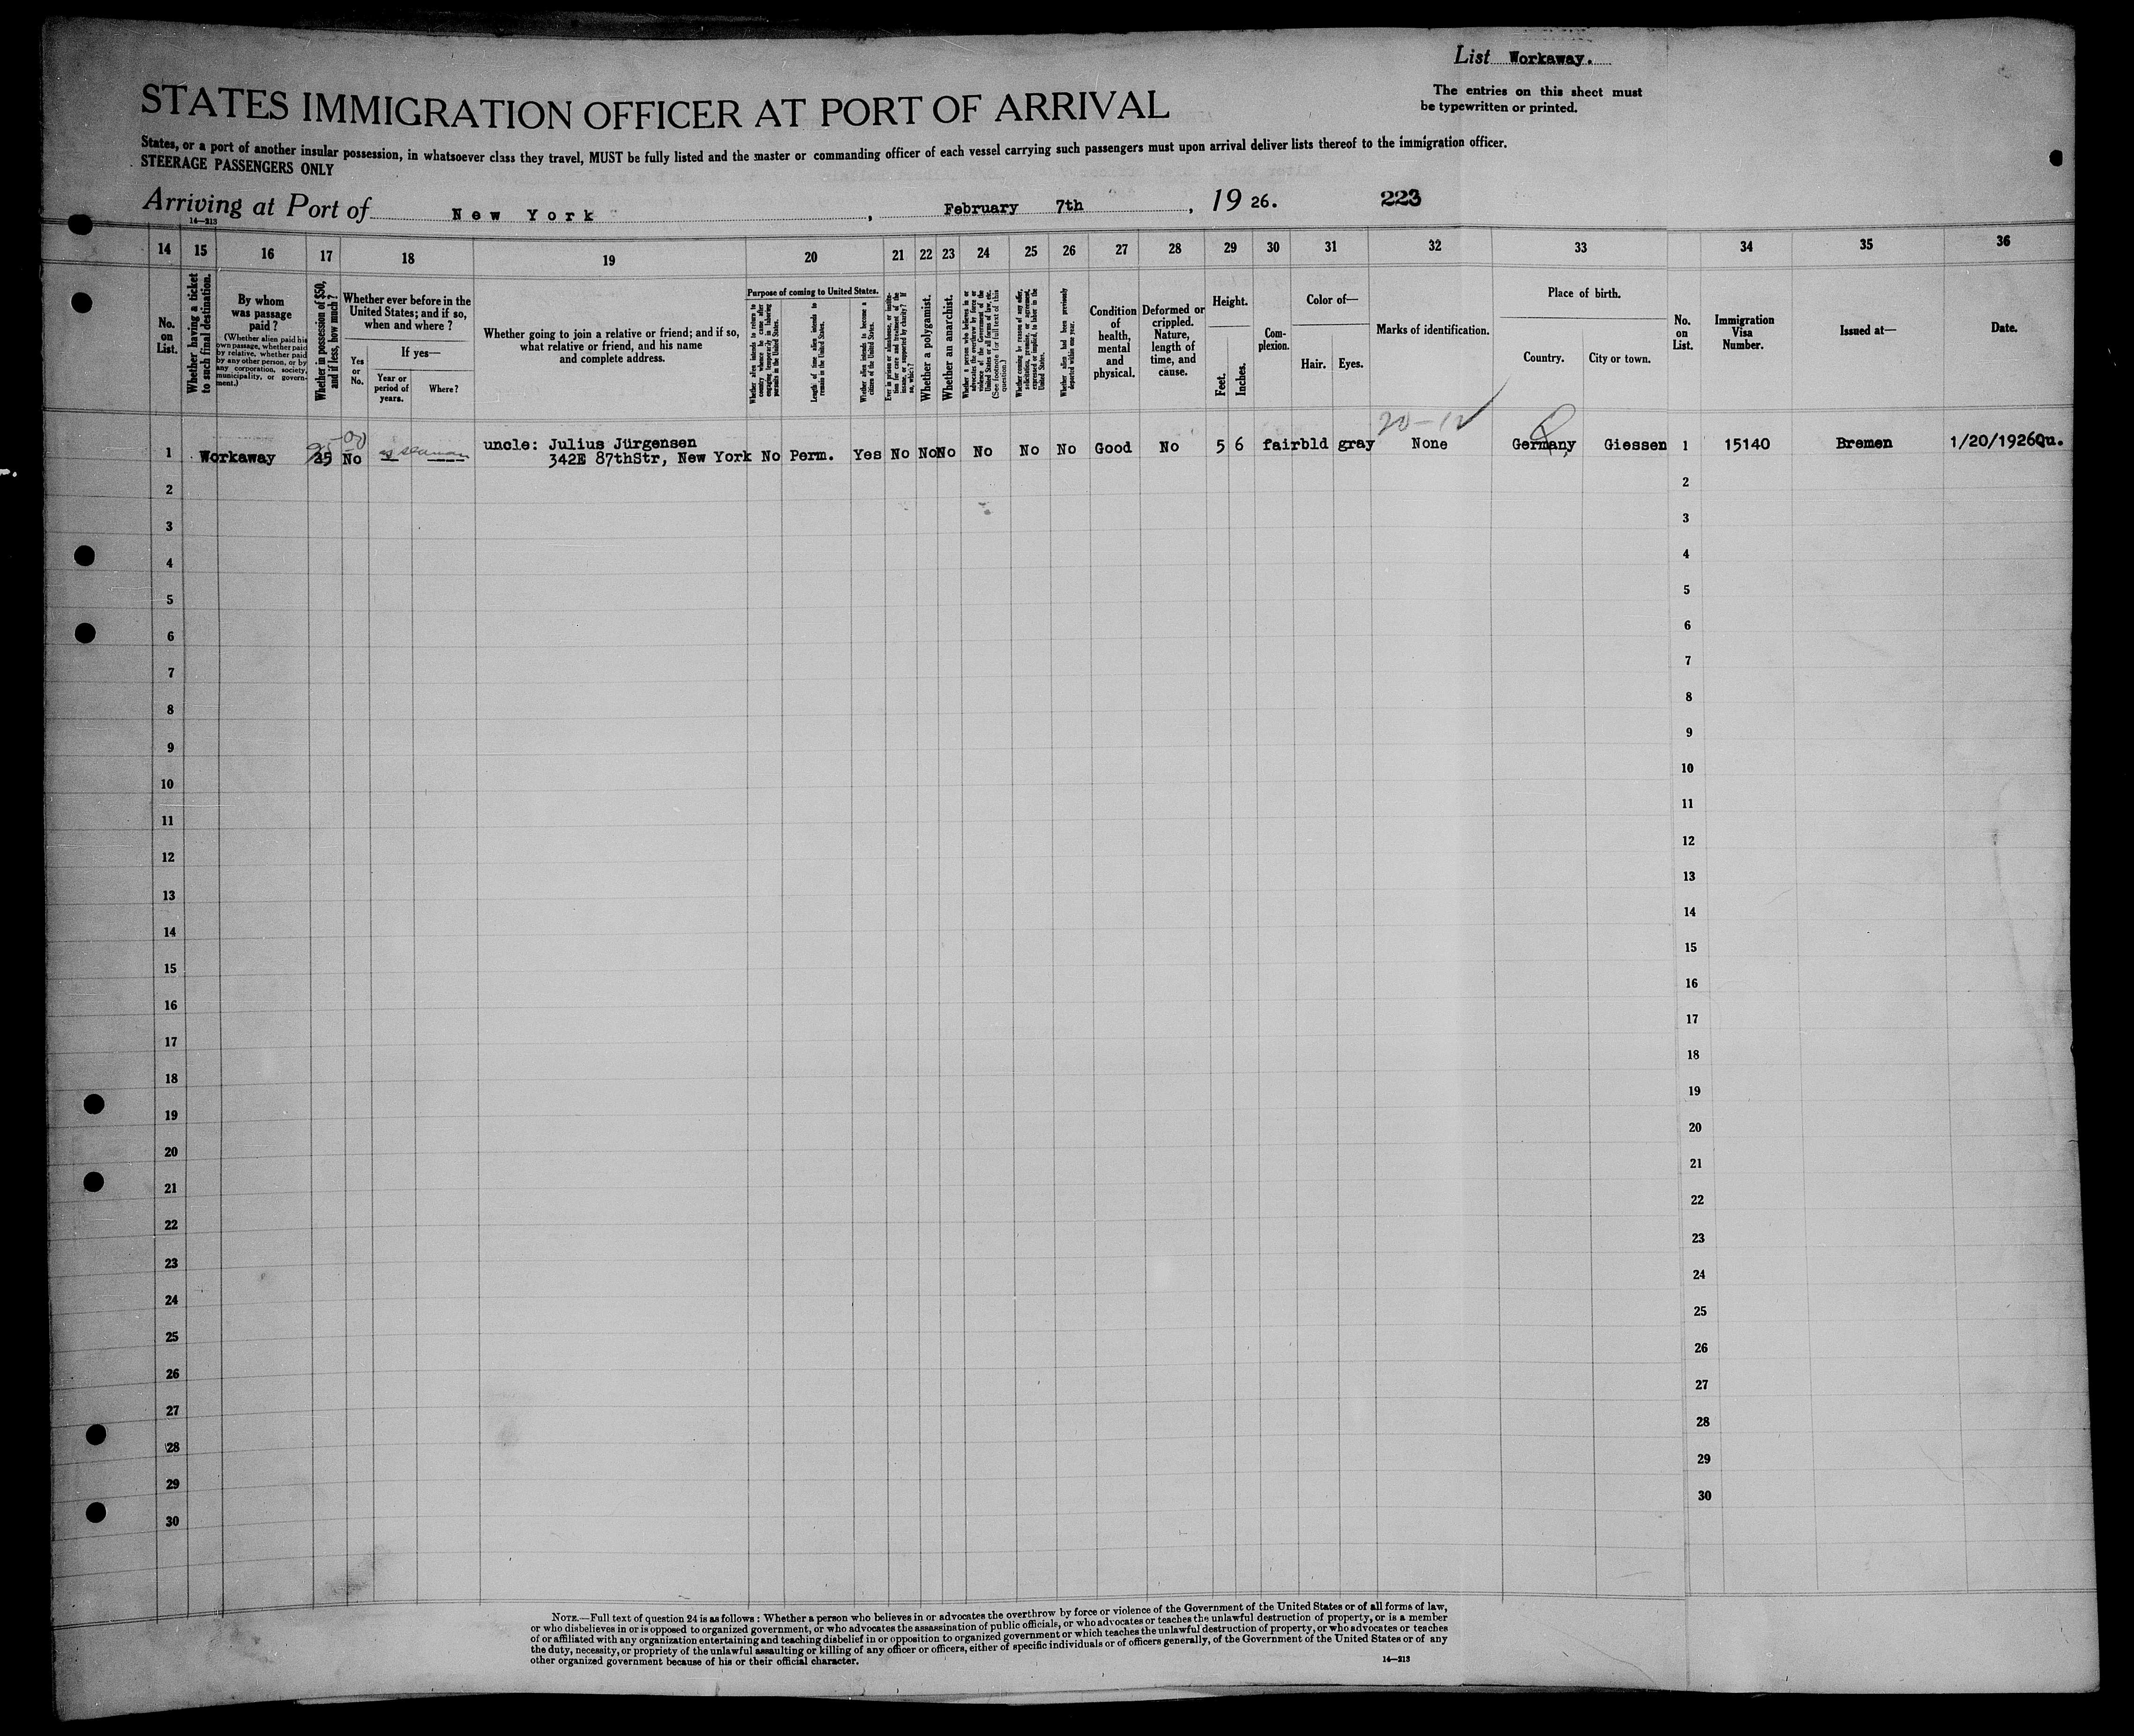 List Workaway.
The entries on this sheet must
be typewritten or printed.
STATES IMMIGRATION OFFICER AT PORT OF ARRIVAL
States, or a port of another insular possession, in whatsoever class they travel, MUST be fully listed and the master or commanding officer of each vessel carrying such passengers must upon arrival deliver lists thereof to the immigration officer.
STEERAGE PASSENGERS ONLY
Arriving at Port of New York, February 7th, 1926. 223
14—213
14 15 16 17 18 19 20 21 22 23 24 25 26 27 28 29 30 31 32 33 34 35 36
No. on List.
Whether having a ticket to such final destination.
By whom was passage paid?
(Whether alien paid his own passage, whether paid by relative, whether paid by any other person, or by any corporation, society, municipality, or government.)
Whether in possession of $50, and if less, how much?
Whether ever before in the United States; and if so, when and where?
Yes or No.
If yes—
Year or period of years.
Where?
Whether going to join a relative or friend; and if so, what relative or friend, and his name and complete address.
Purpose of coming to United States.
Whether alien intends to return to country whence he came after engaging temporarily in laboring pursuits in the United States.
Length of time alien intends to remain in the United States.
Whether alien intends to become a citizen of the United States.
Ever in prison or almshouse, or institution for care and treatment of the insane, or supported by charity? If so, which?
Whether a polygamist.
Whether an anarchist.
Whether a person who believes in or advocates the overthrow by force or violence of the Government of the United States or all forms of law, etc. (See footnote for full text of this question.)
Whether coming by reason of any offer, solicitation, promise, or agreement, expressed or implied, to labor in the United States.
Whether alien had been previously deported within one year.
Condition of health, mental and physical.
Deformed or crippled. Nature, length of time, and cause.
Height.
Feet.
Inches.
Complexion.
Color of—
Hair. Eyes.
Marks of identification.
Place of birth.
Country. City or town.
No. on List.
Immigration Visa Number.
Issued at—
Date.
20-12
1 Workaway 25 No as seaman uncle: Julius Jürgensen
342E 87thStr, New York No Perm. Yes No No No No No No Good No 5 6 fair bld gray None Germany Giessen 1 15140 Bremen 1/20/1926Qu.
2 2
3 3
4 4
5 5
6 6
7 7
8 8
9 9
10 10
11 11
12 12
13 13
14 14
15 15
16 16
17 17
18 18
19 19
20 20
21 21
22 22
23 23
24 24
25 25
26 26
27 27
28 28
29 29
30 30
NOTE.—Full text of question 24 is as follows: Whether a person who believes in or advocates the overthrow by force or violence of the Government of the United States or of all forms of law,
or who disbelieves in or is opposed to organized government, or who advocates the assassination of public officials, or who advocates or teaches the unlawful destruction of property, or is a member
of or affiliated with any organization entertaining and teaching disbelief in or opposition to organized government or which teaches the unlawful destruction of property, or who advocates or teaches
the duty, necessity, or propriety of the unlawful assaulting or killing of any officer or officers, either of specific individuals or of officers generally, of the Government of the United States or of any
other organized government because of his or their official character.
14—213